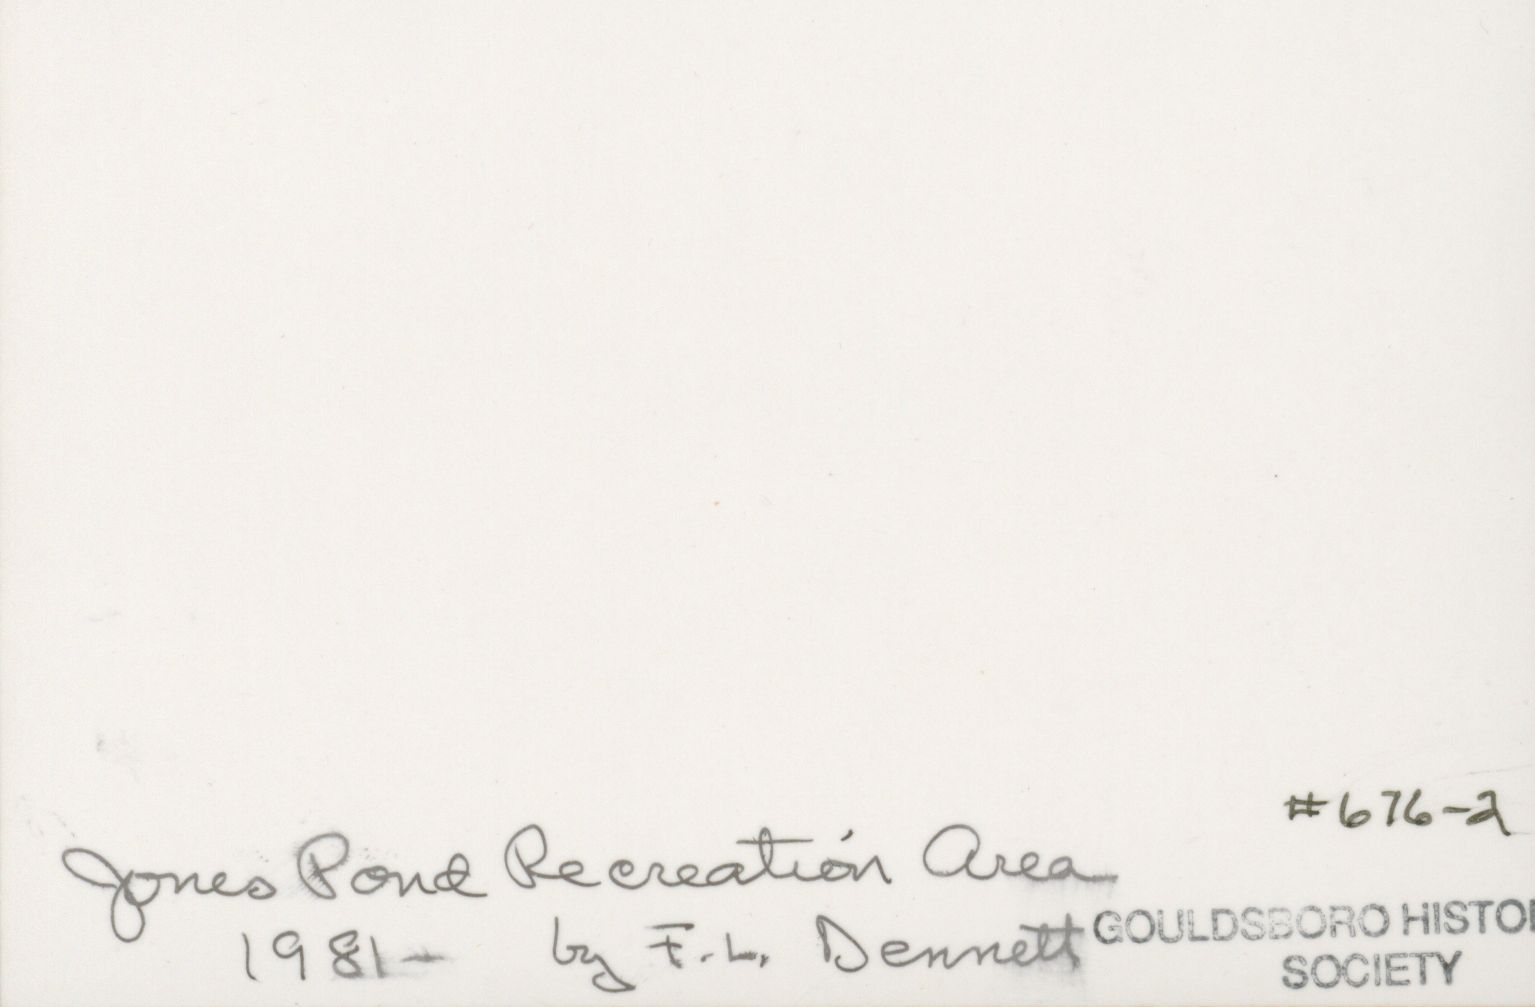 #676-2
Jones Pond Recreation Area
1981- by F.L. Dennett
GOULDSBORO HISTO
SOCIETY